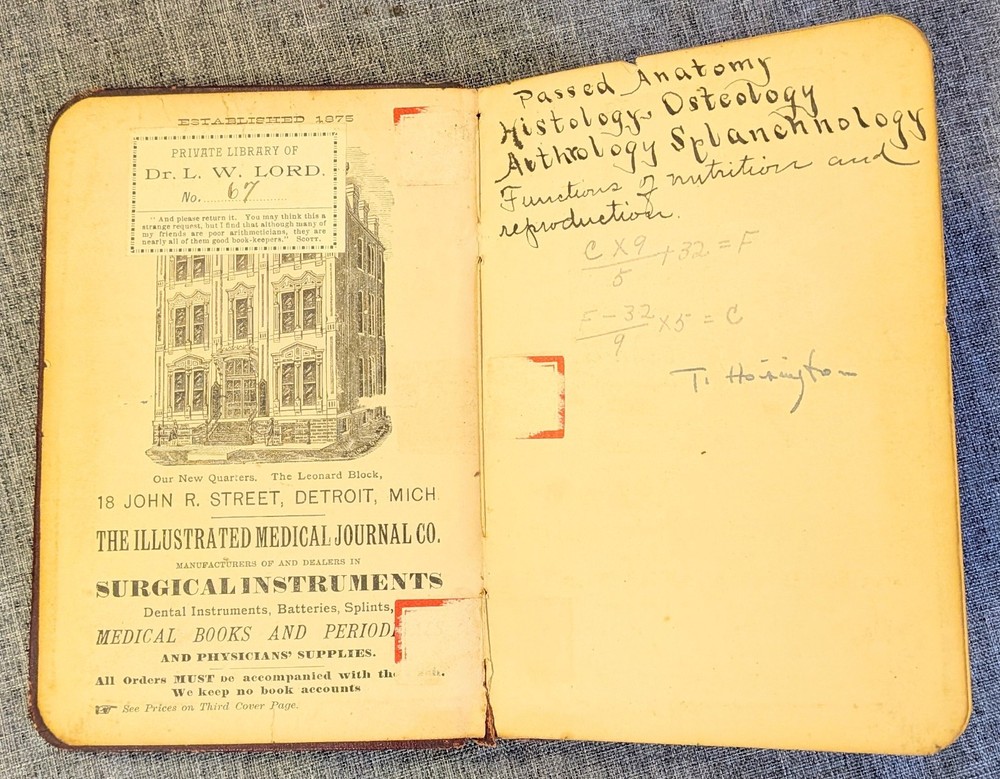 ESTABLISHED 1875
PRIVATE LIBRARY OF
Dr. L. W. LORD.
No. 67
"And please return it. You may think this a
strange request, but I find that although many of
my friends are poor arithmeticians, they are
nearly all of them good book-keepers." SCOTT.
Our New Quarters. The Leonard Block,
18 JOHN R. STREET, DETROIT, MICH
THE ILLUSTRATED MEDICAL JOURNAL CO.
MANUFACTURERS OF AND DEALERS IN
SURGICAL INSTRUMENTS
Dental Instruments, Batteries, Splints,
MEDICAL BOOKS AND PERIODI
AND PHYSICIANS' SUPPLIES.
All Orders MUST be accompanied with the
We keep no book accounts
☞ See Prices on Third Cover Page.
Passed Anatomy
Histology Osteology
Arthrology Splanchnology
Functions of nutrition and
reproduction.
C X 9
5
+ 32 = F
F - 32
9
X 5 = C